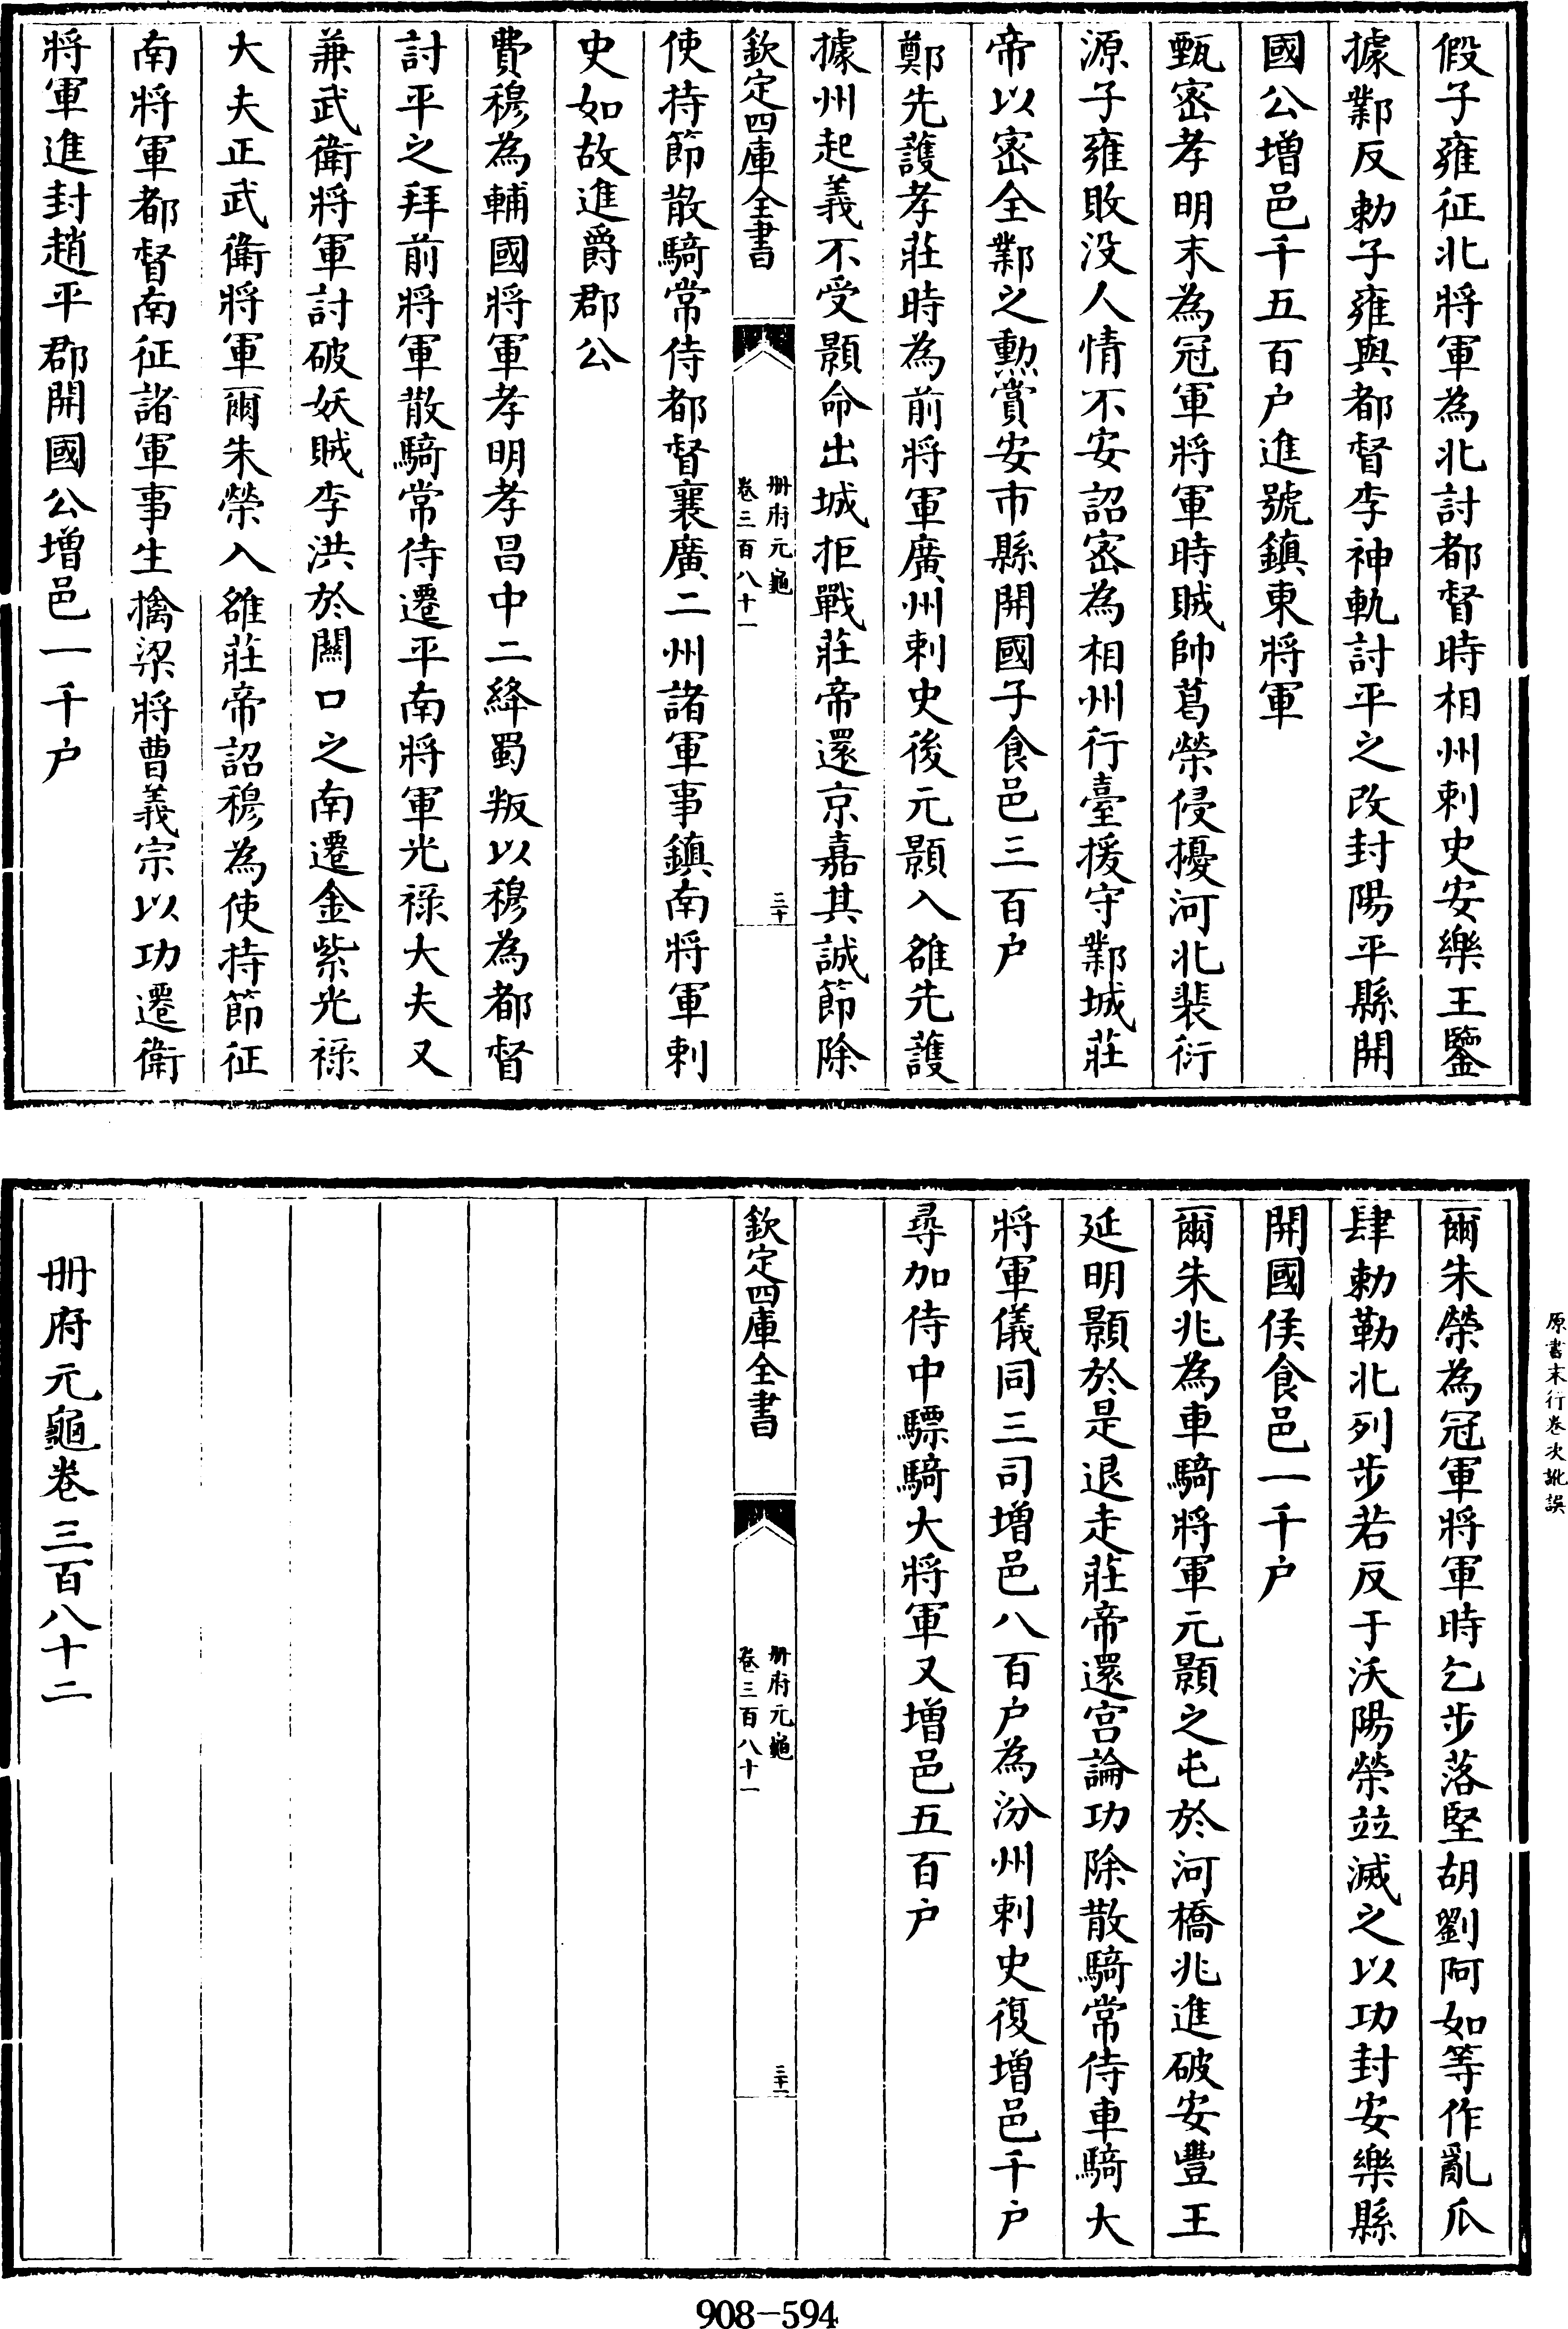 假子雍征北將軍為北討都督時相州刺史安樂王鑒
據鄴反勅子雍與都督李神軌討平之改封陽平縣開
國公增邑千五百户進號鎮東將軍
甄密孝明末為冠軍將軍時賊帥葛榮侵擾河北裴衍
源子雍敗没人情不安詔密為相州行臺援守鄴城莊
帝以密全鄴之勲賞安市縣開國子食邑三百户
鄭先護孝莊時為前將軍廣州刺史後元顥入雒先護
據州起義不受顥命出城拒戰莊帝還京嘉其誠節除
欽定四庫全書
冊府元龜
卷三百八十一
三十
使持節散騎常侍都督襄廣二州諸軍事鎮南將軍刺
史如故進爵郡公
費穆為輔國將軍孝明孝昌中二絳蜀叛以穆為都督
討平之拜前將軍散騎常侍遷平南將軍光祿大夫又
兼武衛將軍討破妖賊李洪於闗口之南遷金紫光祿
大夫正武衛將軍爾朱榮入雒莊帝詔穆為使持節征
南將軍都督南征諸軍事生擒梁將曹義宗以功遷衛
將軍進封趙平郡開國公增邑一千户
原書末行卷次訛誤
爾朱榮為冠軍將軍時乞步落堅胡劉阿如等作亂瓜
肆勅勒北列步若反于沃陽榮並滅之以功封安樂縣
開國侯食邑一千户
爾朱兆為車騎將軍元顥之屯於河橋兆進破安豐王
延明顥於是退走莊帝還宫論功除散騎常侍車騎大
將軍儀同三司增邑八百户為汾州刺史復增邑千户
尋加侍中驃騎大將軍又增邑五百户
欽定四庫全書
冊府元龜
卷三百八十一
三十一
冊府元龜卷三百八十二
908-594